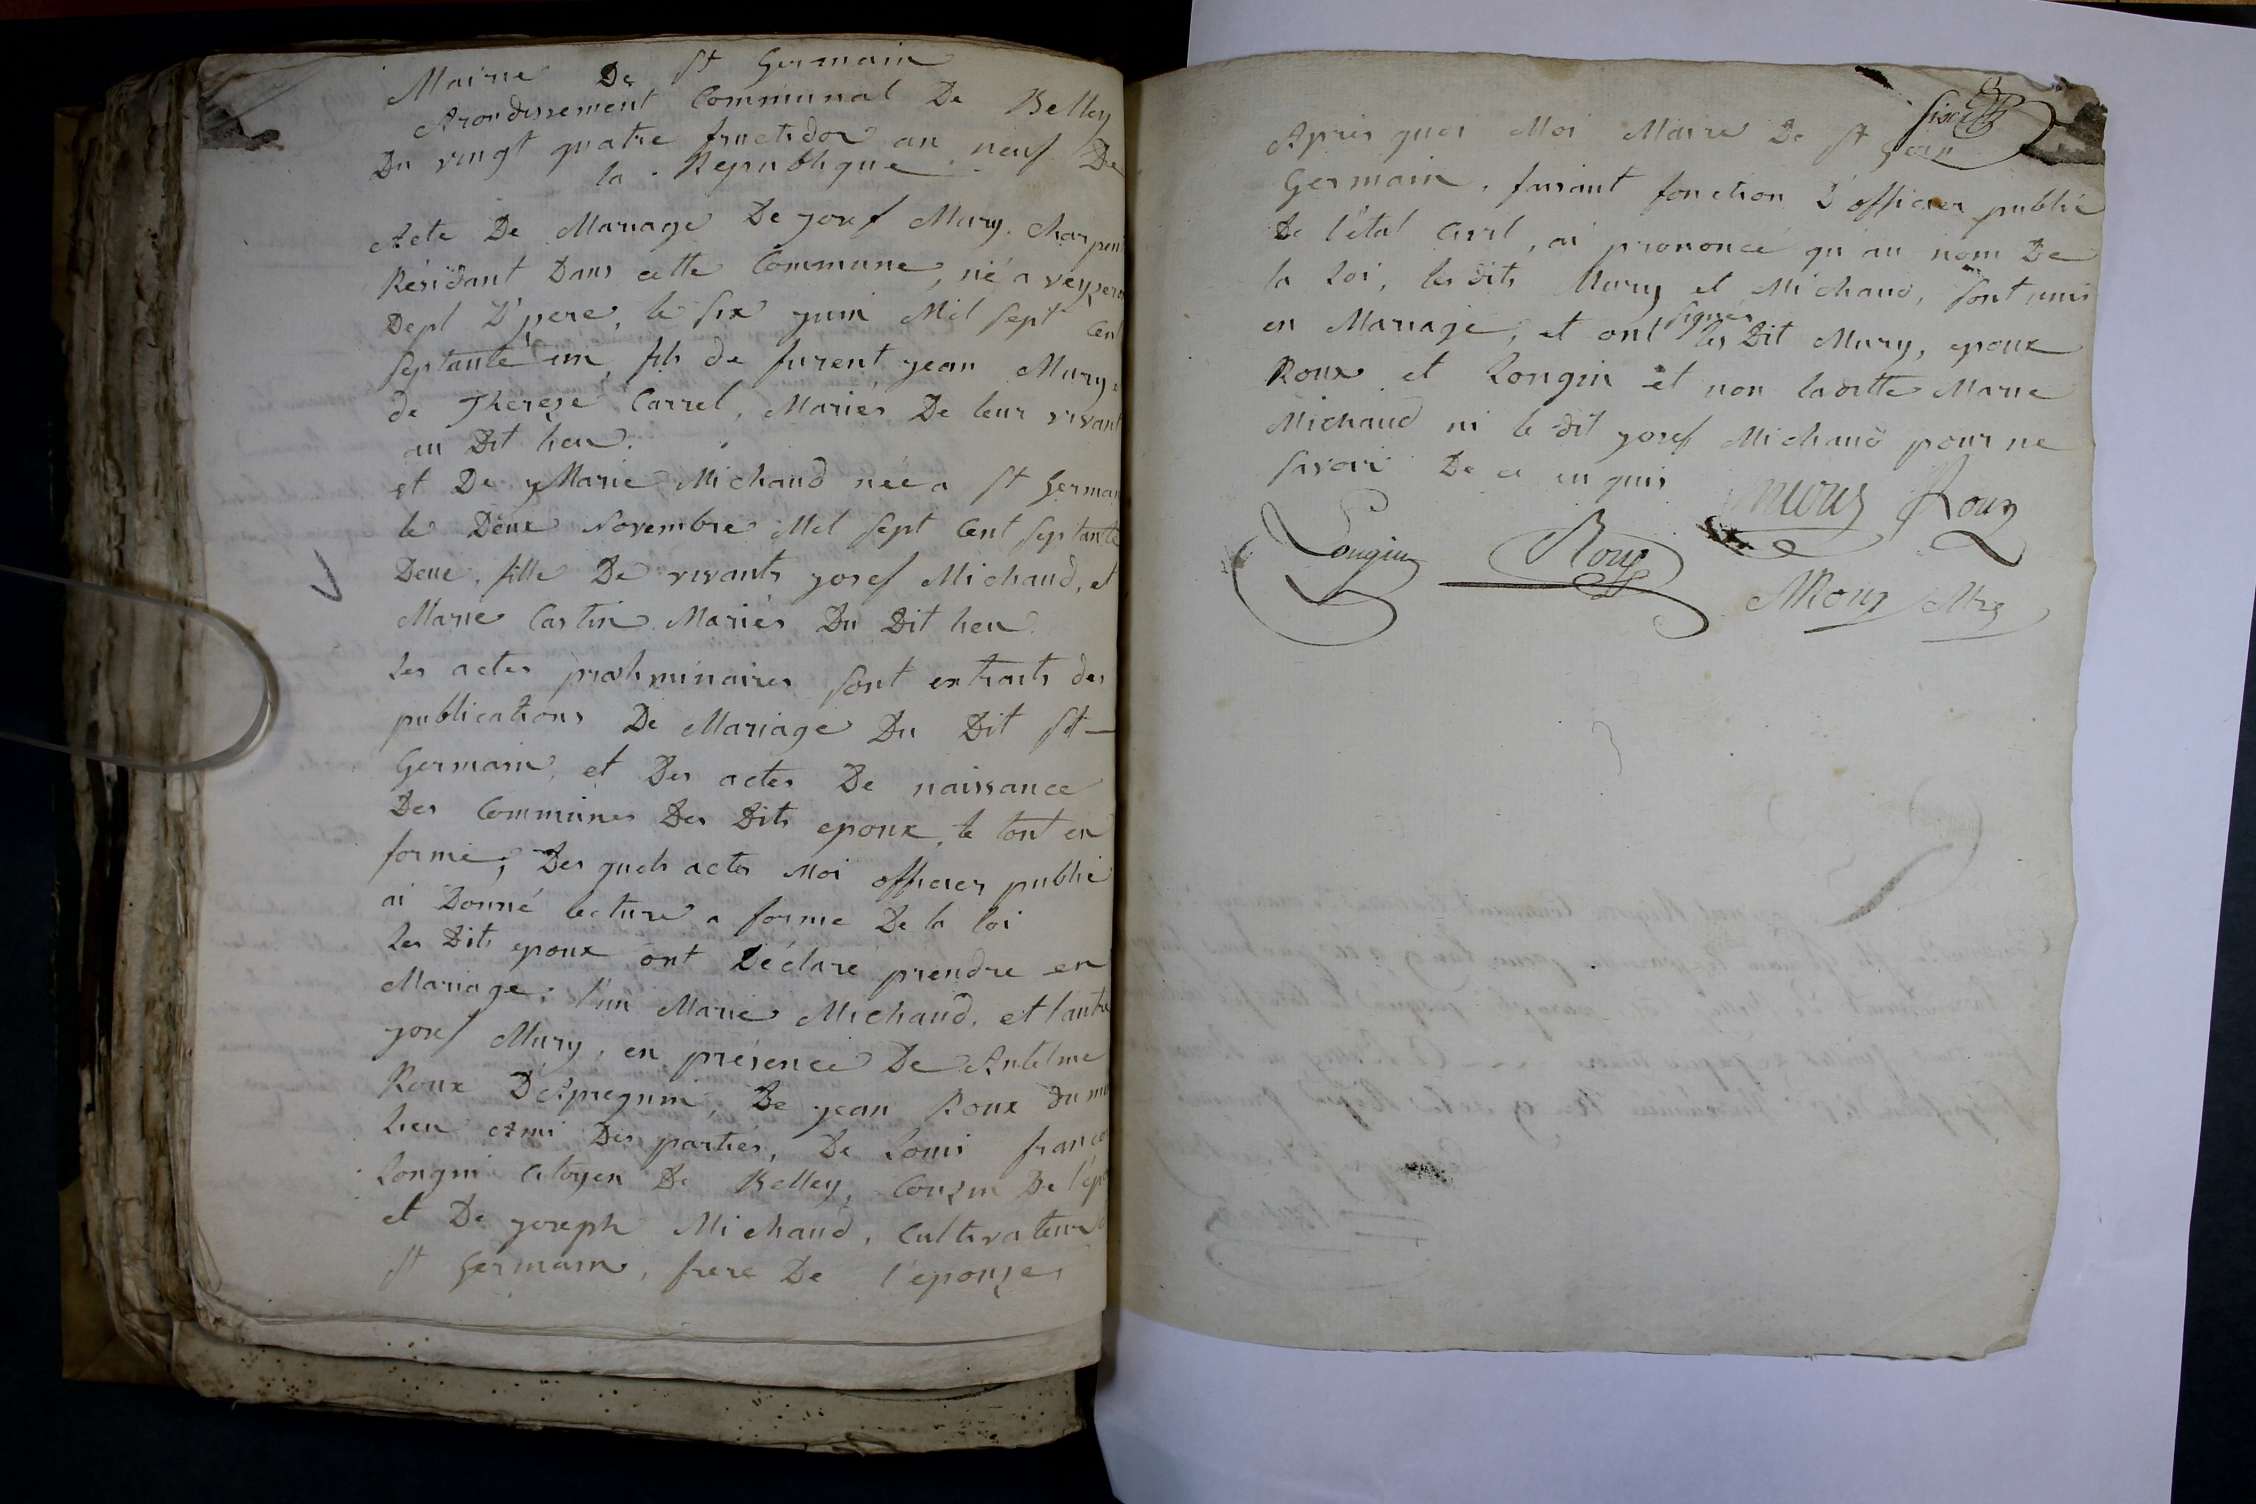 Mairie De St Germain
Arondissement Communal De Belley
Du vingt quatre fructidor an neuf De
la Republique
Acte De Mariage De josef Mury, Charpen
Résidant Dans cette Commune, né a
Dept D'ysere, le six juin Mil sept Cent
septante un, fils de furent jean Mury et
de Thereze Carrel, Mariés De leur vivant
au Dit lieu.
et De Marie Michaud née a St Germain
le Deux Novembre Mil sept Cent septante
Deux, fille De vivants josef Michaud, et
Marie Castin Mariés Du Dit lieu.
les actes préliminaires sont extraits des
publications De Mariage Du Dit St
Germain, et Des actes De naissance
Des Communes Des Dits epoux, le tout en
forme; Des quels actes Moi officier public
ai Donné lecture a forme De la loi
les Dits epoux ont Déclaré prendre en
Mariage; l'un Marie Michaud, et l'autre
josef Mury, en présence De Antelme
Roux D'Apregnin, De jean Roux du me
lieu amis Des parties, De Louis françois
Longin Citoyen De Belley, Couzin De l'épou
et De joseph Michaud, Cultivateur
St Germain, frere De l'epouze
Après quoi Moi Maire De St
Germain, faisant fonction D'officier public
De l'état Civil, ai prononcé qu'au nom De
la loi, les dits Mury et Michaud, sont unis
en Mariage, et ont signés les Dit Mury, epoux
Roux et Longin et non laditte Marie
Michaud ni le dit josef Michaud pour ne
savoir De ce enquis
mury Roux
Longin Roux
Roux Mre